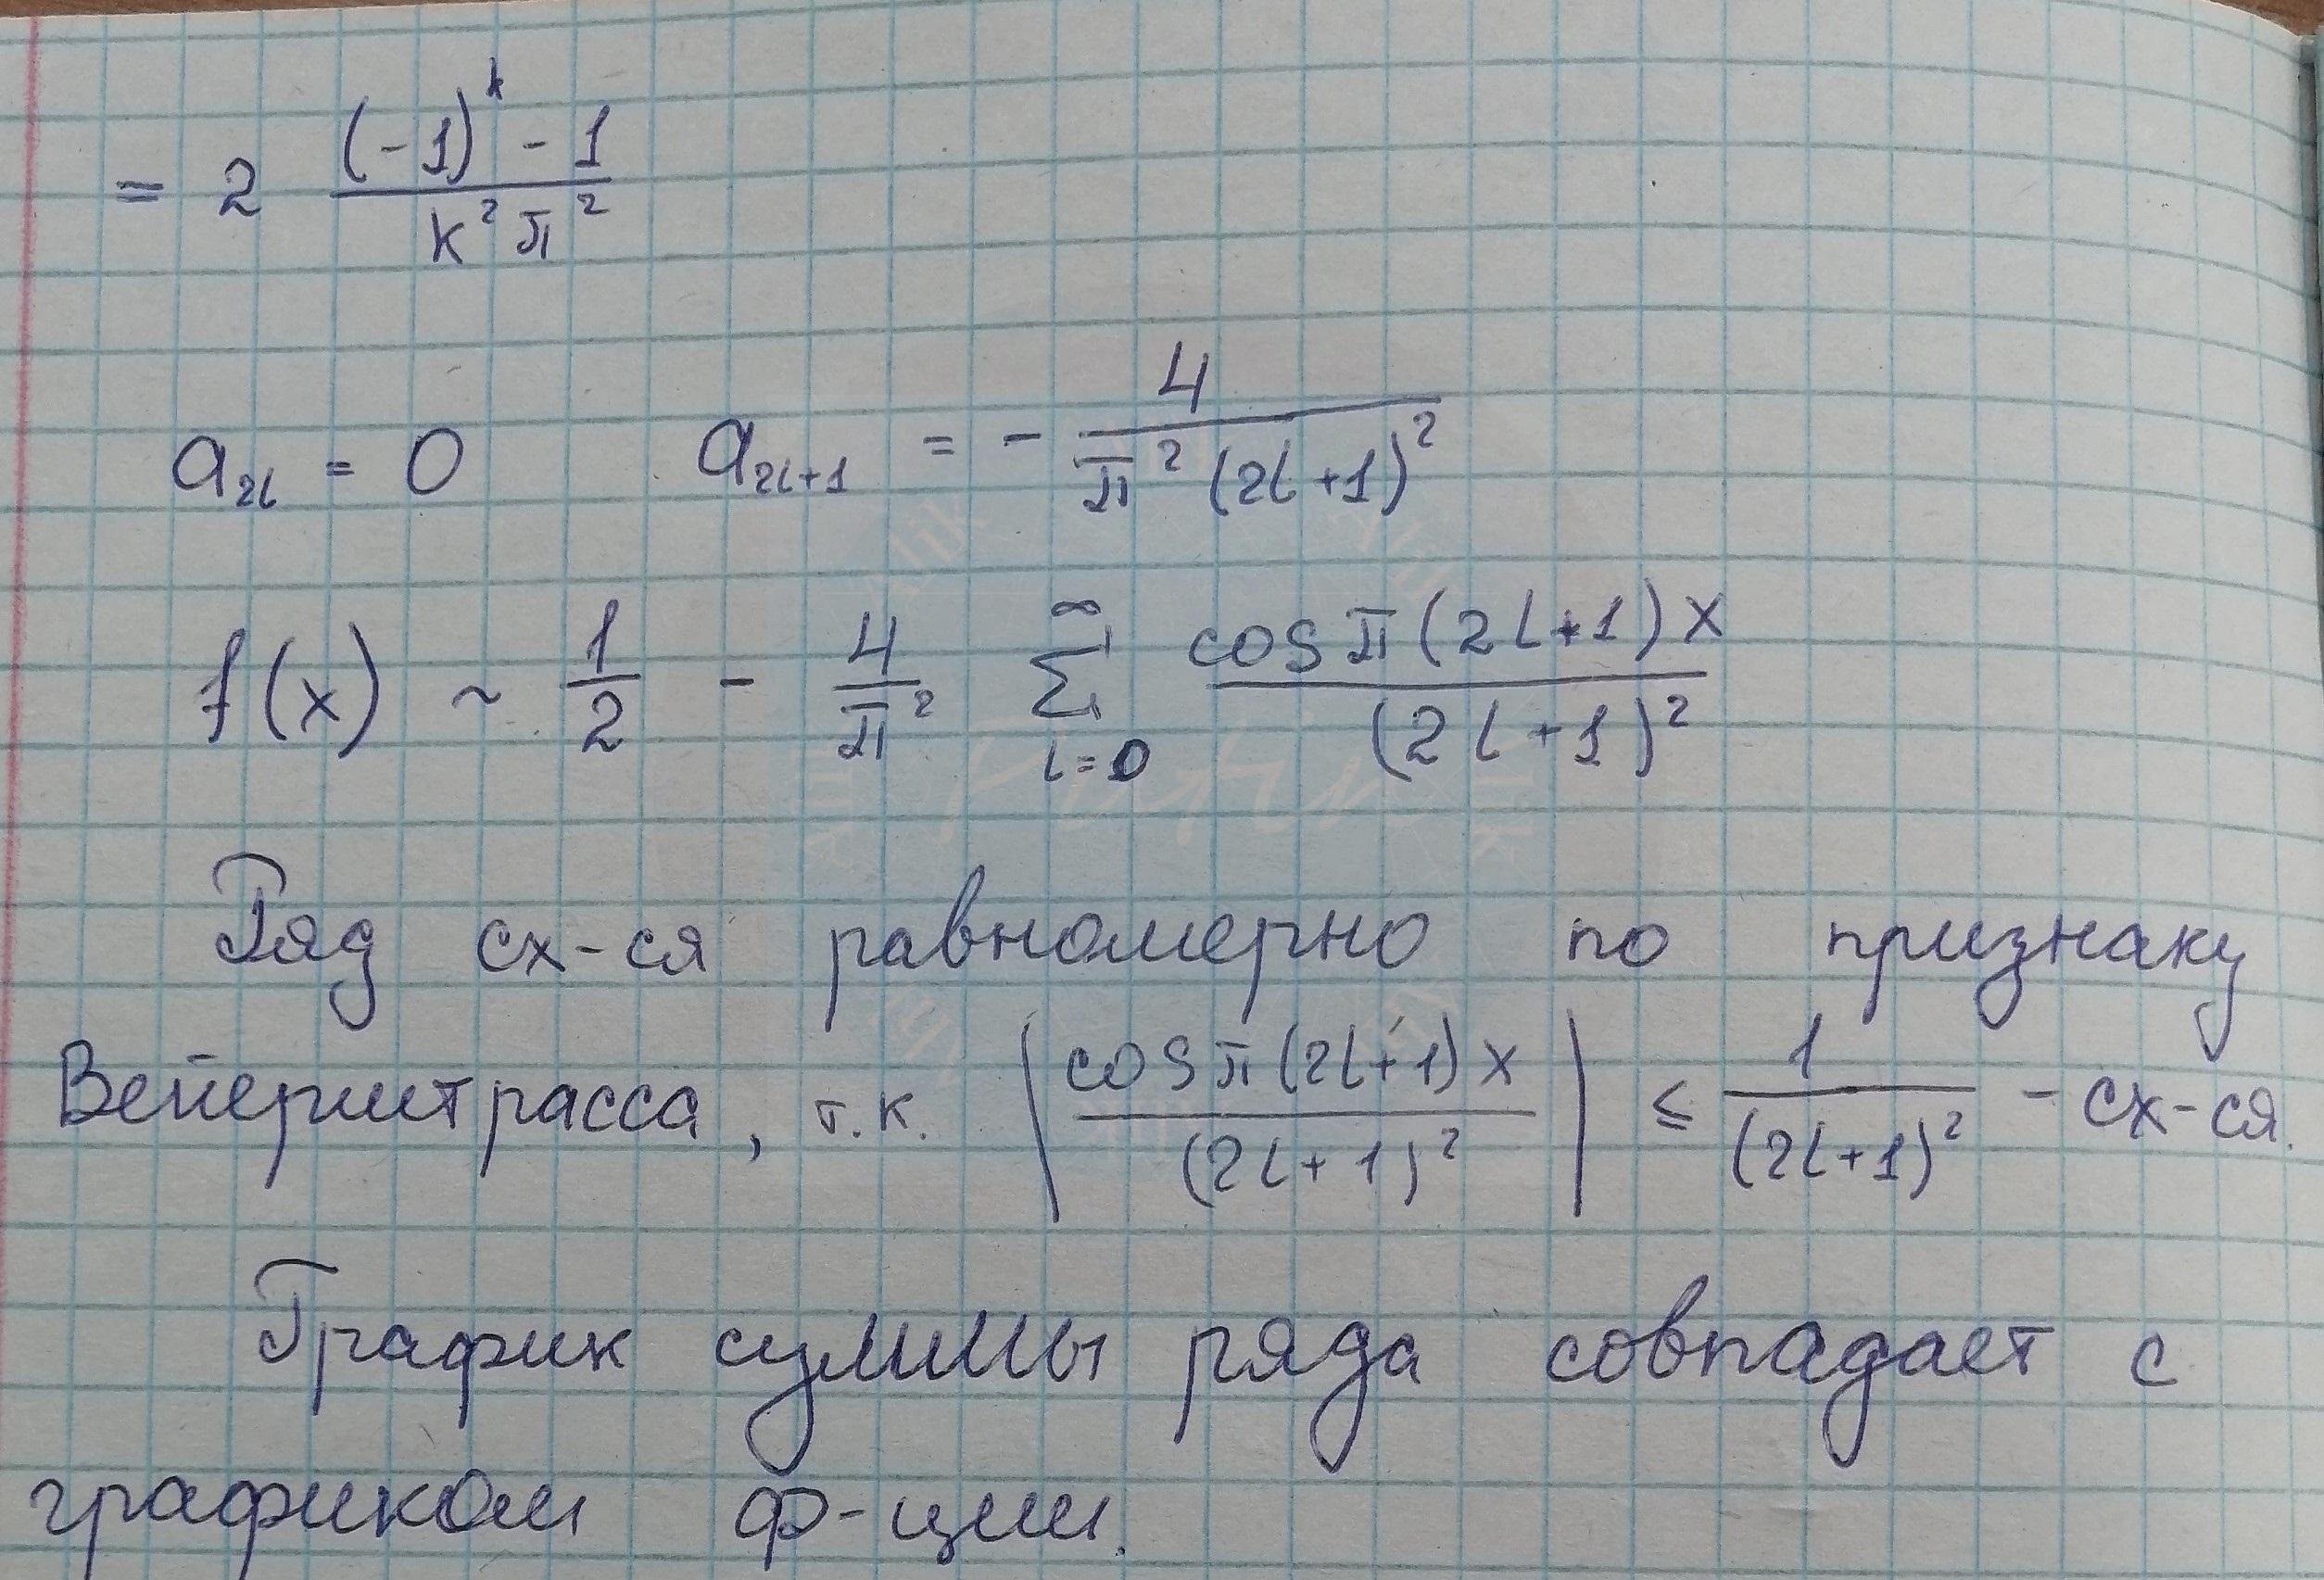 = 2 ((-1)^k - 1)/(k² π²)
a_{2l} = 0 a_{2l+1} = - 4/(π² (2l+1)²)
f(x) ~ 1/2 - 4/π² ∑_{l=0}^{∞} cos π(2l+1)x/(2l+1)²
Ряд сх-ся равномерно по признаку
Вейерштрасса, т.к. |cos π(2l+1)x/(2l+1)²| ≤ 1/(2l+1)² - сх-ся.
График суммы ряда совпадает с
графиком ф-ции.